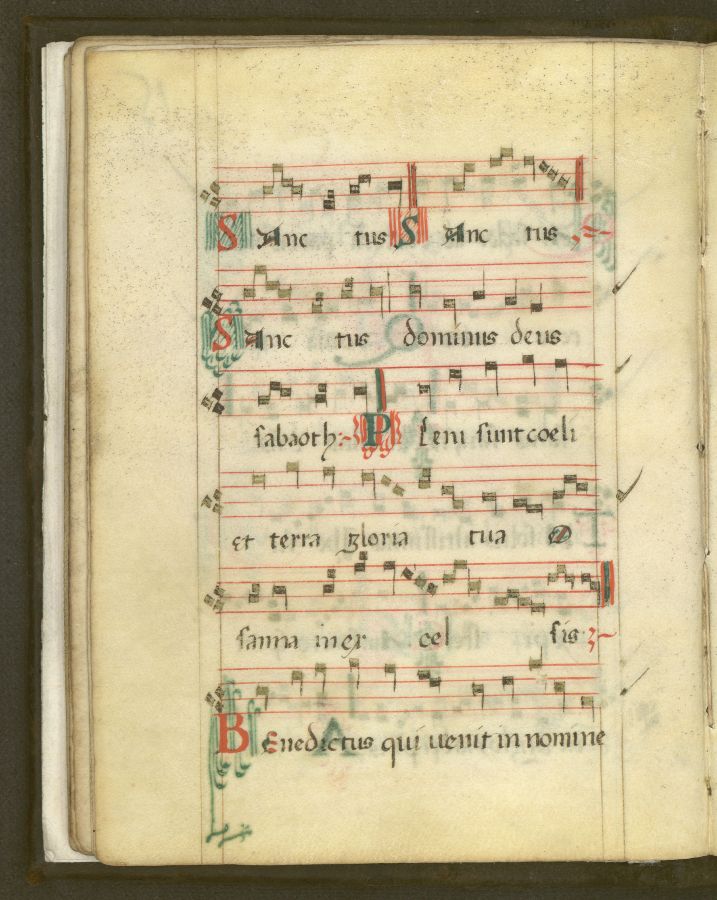 SAnc tus SAnc tus
SAnc tus dominus deus
sabaoth: PLeni sunt coeli
et terra gloria tua O
sanna in ex cel sis
BEnedictus qui uenit in nomine